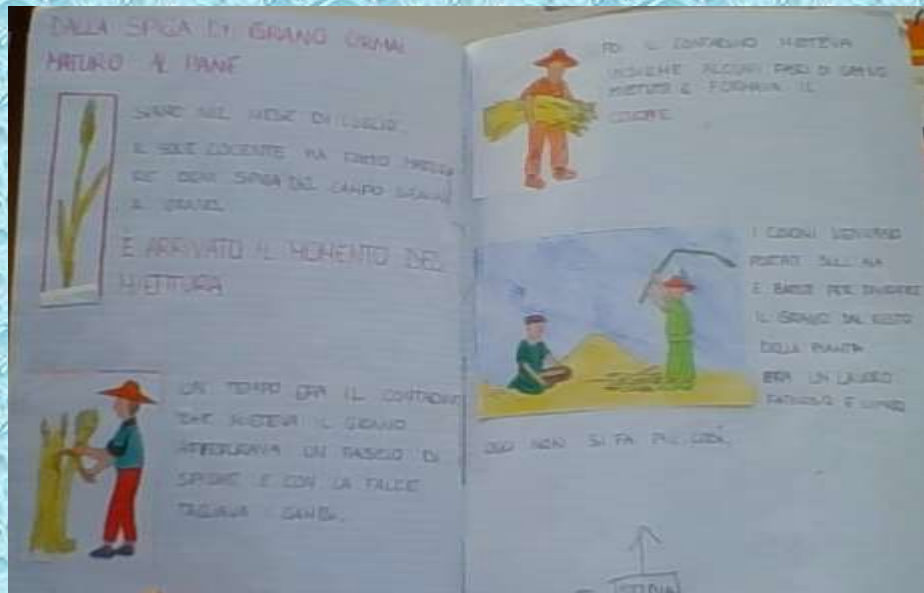 DALLA SPIGA DI GRANO ORMAI
MATURO AL PANE
SIAMO NEL MESE DI LUGLIO.
IL SOLE COCENTE HA FATTO
SPIGA DEL CAMPO
E ARRIVATO IL MOMENTO DEL
MIETITURA
UN TEMPO ERA IL CONTADINO
CHE MIETEVA IL GRANO
AFFERRAVA UN FASCIO DI
SPIGHE E CON LA FALCE
TAGLIAVA I GAMBI.
POI IL CONTADINO METTEVA
INSIEME ALCUNI FASCI DI GRANO
MIETUTI E FORMAVA IL
COVONE
I COVONI VENIVANO
PORTATI SULL'AIA
E BATTUTI PER DIVIDERE
IL GRANO DAL RESTO
DELLA PIANTA
ERA UN LAVORO
FATICOSO E LUNGO
OGGI NON SI FA PIÙ COSÌ.